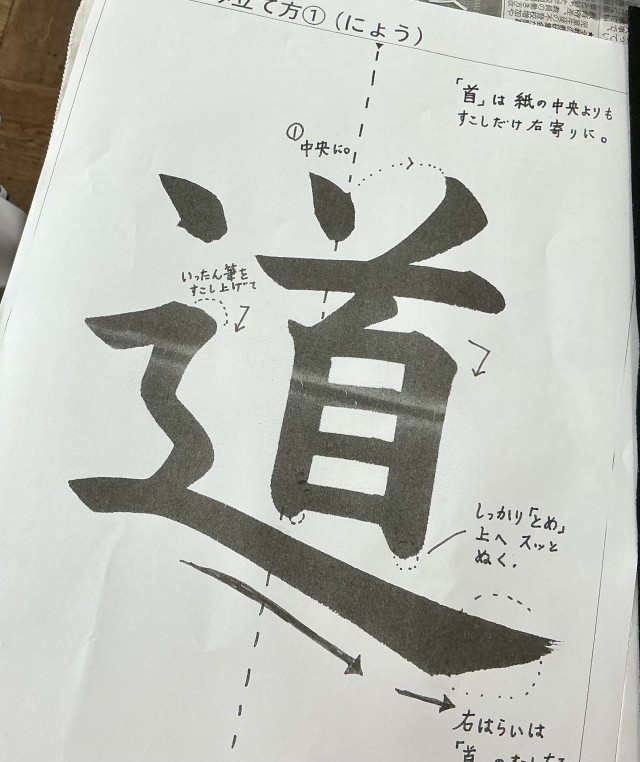 立て方①(にょう)
「首」は紙の中央よりも
すこしだけ右寄りに。
①
中央に。
道
いったん筆を
すこし上げて
しっかり「とめ」
上へ スッと
ぬく.
右はらいは